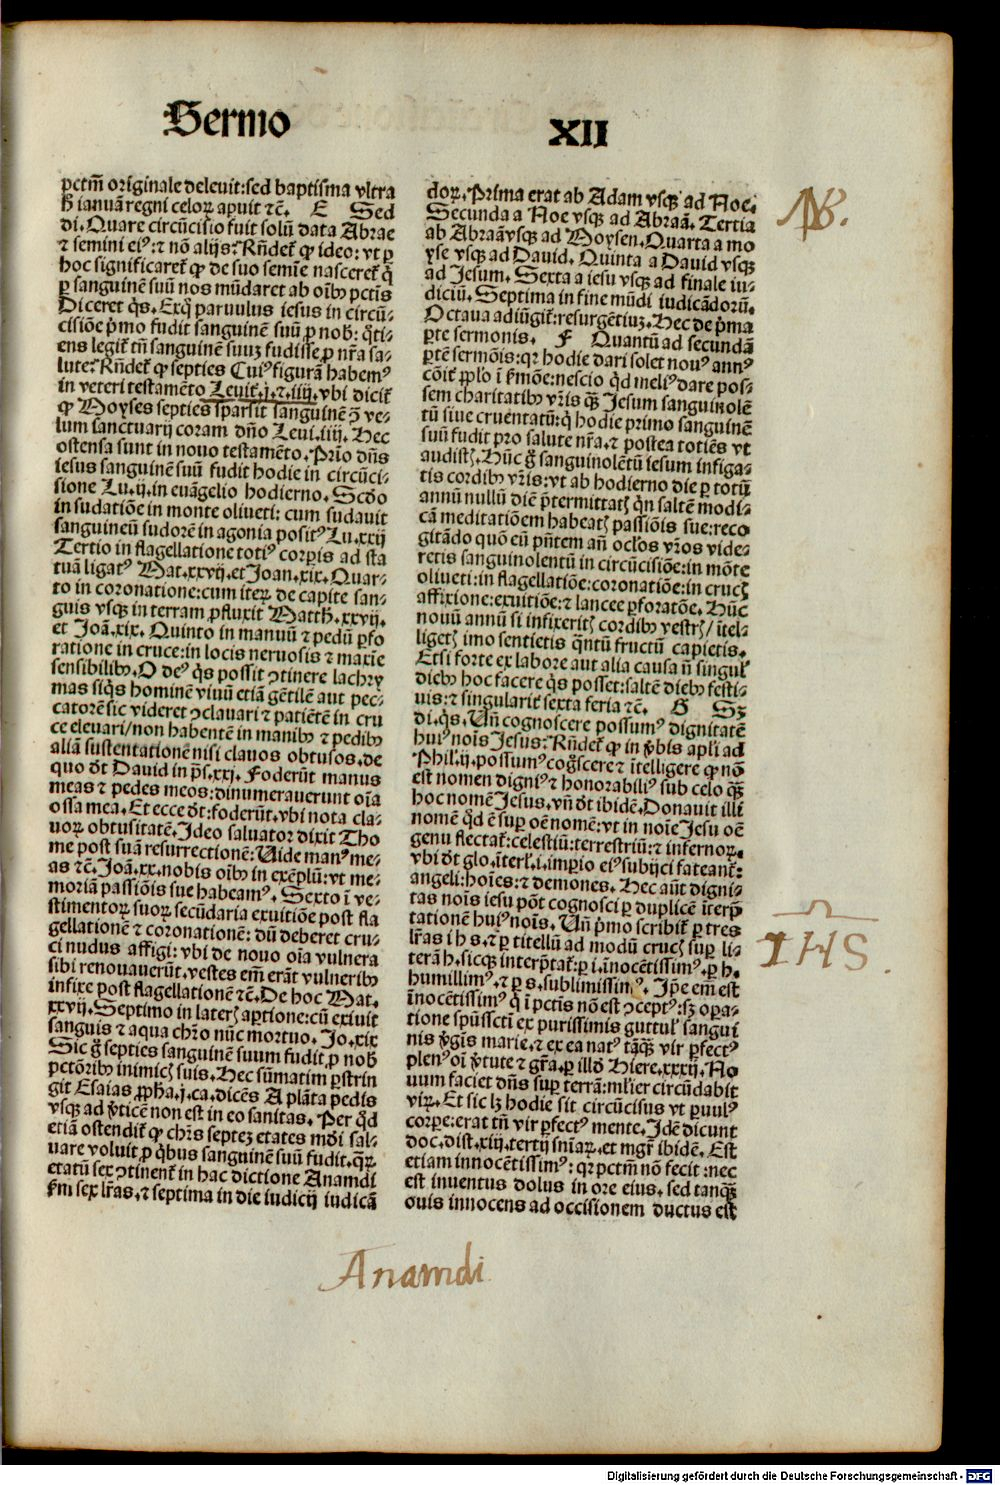 Sermo
XII
pctm̄ originale deleuit: sed baptisma vltra
ꝓ ianuā regni celoꝝ apuit ⁊c̄. E Sed
di. Quare circūcisio fuit solū data Abrae
⁊ semini eiꝰ: ⁊ nō alijs? Rn̄det͛ ꝙ ideo: vt ꝑ
hoc significaret͛ ꝙ de suo semīe nasceret͛ q̇
ꝑ sanguinē suū nos mūdaret ab oīb⁹ pctīs
Diceret q̇s. Exq̇ paruulus iesus in circū-
cisiōe p̄mo fudit sanguinē suū ꝓ nob: q̇ti-
ens legit͛ tn̄ sanguinē suuꝫ fudisse ꝓ nr̄a sa-
lute? Rn̄det͛ ꝙ septies Cuiꝰ figurā habemꝰ
in veteri testamēto Leuit͛. j. ⁊. iiij. vbi dicit͛
ꝙ Moyses septies sparsit sanguinē ꝯ̄ ve-
lum sanctuarij coram dn̄o Leui. iiij. Hec
ostensa sunt in nouo testamēto. Prīo dn̄s
iesus sanguinē suū fudit hodie in circūci-
sione Lu. ij. in euāgelio hodierno. Scd̄o
in sudatiōe in monte oliueti: cum sudauit
sanguineū sudorē in agonia positꝰ Lu. xxij
Tertio in flagellatione totiꝰ corꝑis ad sta
tuā ligatꝰ Mat. xxvij. et Joan. xix. Quar-
to in coronatione: cum iteꝝ de capite san-
guis vsqꝫ in terram ꝓfluxit Matth̄. xxvij.
et Joā. xix. Quinto in manuū ⁊ pedū ꝑfo
ratione in cruce: in locis neruosis ⁊ maxīe
sensibilib⁹. O deꝰ q̇s possit ꝯtinere lachry
mas siq̇s hominē viuū etiā gētilē aut pec-
catorē sic videret ꝯclauari ⁊ patiētē in cru
ce eleuari/ non habentē in manib⁹ ⁊ pedib⁹
aliā sustentationē nisi clauos obtusos. de
quo dt̄ Dauid in p̄s. xxj. Foderūt manus
meas ⁊ pedes meos: dinumerauerunt oīa
ossa mea. Et ecce dt̄: foderūt. vbi nota cla-
uoꝝ obtusitatē. Ideo saluator dixit Tho
me post suā resurrectionē: Uide manꝰ me-
as ⁊c̄. Joā. xx. nobis oīb⁹ in exēplū: vt me-
moriā passiōis sue habeamꝰ. Sexto ī ve-
stimentoꝝ suoꝝ secūdaria exuitiōe post fla
gellationē ⁊ coronationē: dū deberet cru-
ci nudus affigi: vbi de nouo oīa vulnera
sibi renouauerūt. vestes em̄ erāt vulnerib⁹
infixe post flagellationē ⁊c̄. De hoc Mat.
xxvij. Septimo in lateris aꝑtione: cū exiuit
sanguis ⁊ aqua chr̄o nūc mortuo. Jo. xix
Sic g̊ septies sanguinē suum fudit ꝓ nob
pctōrib⁹ inimicis suis. Hec sūmatim ꝑstrin
git Esaias ꝓpha. j. ca. dicēs A plāta pedis
vsqꝫ ad v̇ticē non est in eo sanitas. Per qd̄
etiā ostendit͛ ꝙ chr̄s septeꝫ etates mūdi sal-
uare voluit ꝓ q̇bus sanguinē suū fudit. qꝝ
etatū sex ꝯtinent͛ in hac dictione Anamdi
ẜm sex lr̄as. ⁊ septima in die iudicij iudicā
doꝝ. Prima erat ab Adam vsqꝫ ad Noe.
Secunda a Noe vsqꝫ ad Abraā. Tertia
ab Abraā vsqꝫ ad Moysen. Quarta a mo
yse vsqꝫ ad Dauid. Quinta a Dauid vsqꝫ
ad Jesum. Sexta a iesu vsqꝫ ad finale iu-
diciū. Septima in fine mūdi iudicādorū.
Octaua adiūgit͛: resurgētiuꝫ. Hec de p̄ma
ꝑte sermonis. F Quantū ad secundā
ꝑtē sermōis: qꝛ hodie dari solet nouꝰ annꝰ
cōit͛ ꝓplo ī ẜmōe: nescio qd̄ meliꝰ dare pos-
sem charitatib⁹ vr̄is qꝫ Jesum sanguinolē
tū siue cruentatū: q̇ hodie primo sanguinē
suū fudit pro salute nr̄a. ⁊ postea totiēs vt
audistis. Hūc g̊ sanguinolētū iesum infiga-
tis cordib⁹ vr̄is: vt ab hodierno die ꝑ totū
annū nullū diē p̄termittatis q̇n saltē modi-
cā meditatiōem habeatis passiōis sue: reco
gitādo quō eū pn̄tem an̄ oclos vr̄os vide-
retis sanguinolentū in circūcisiōe: in mōte
oliueti: in flagellatiōe: coronatiōe: in crucis
affixione: exuitiōe: ⁊ lancee ꝑforatōe. Hūc
nouū annū si infixeritis cordib⁹ vestris/ ītel-
ligetis imo sentietis q̄ntū fructū capietis.
Etsi forte ex labore aut alia causa n̄ singul̄
dieb⁹ hoc facere q̇s posset: saltē dieb⁹ festi-
uis: ⁊ singularit͛ sexta feria ⁊c̄. G Sꝫ
di. q̇s. Un̄ cognoscere possumꝰ dignitatē
huiꝰ noīs Jesus? Rn̄det͛ ꝙ in v̇bis apl̄i ad
Phil. ij. possumꝰ cog̊scere ⁊ ītelligere ꝙ nō
est nomen digniꝰ ⁊ honorabiliꝰ sub celo qꝫ
hoc nomē Jesus. vn̄ dt̄ ibidē. Donauit illi
nomē qd̄ ē suꝑ oē nomē: vt in noīe Jesu oē
genu flectat͛: celestiū: terrestriū: ⁊ infernoꝝ.
vbi dt̄ glo. īterl̄. i. imꝑio eiꝰ subijci fateant͛:
angeli: hoīes: ⁊ demones. Hec aūt digni-
tas noīs iesu pōt cognosci ꝑ duplicē īterp̄
tationē huiꝰ noīs. Un̄ p̄mo scribit͛ ꝑ tres
lr̄as i h s. ⁊ ꝑ titellū ad modū crucis suꝑ li-
terā h. sicqꝫ interp̄tat͛: ꝑ i. īnocētissimꝰ. ꝑ h.
humillimꝰ. ⁊ ꝑ s. sublimissimꝰ. Ip̄e em̄ est
īnocētissimꝰ q̇ ī pctīs nō est ꝯceptꝰ: sꝫ oꝑa-
tione spūssctī ex purissimis guttul̄ sangui
nis v̇gīs marie. ⁊ ex ea natꝰ tāqꝫ vir ꝑfectꝰ
plenꝰ oī v̇tute ⁊ gr̄a. ꝑ illd̄ Hiere. xxxij. No
uum faciet dn̄s suꝑ terrā: ml̄ier circūdabit
viꝝ. Et sic lꝫ hodie sit circūcisus vt ꝑuulꝰ
corꝑe: erat tn̄ vir ꝑfectꝰ mente. Idē dicunt
doc. dist. xiij. tertij sniaꝝ. et mgr̄ ibidē. Est
etiam innocētissimꝰ: qꝛ pctm̄ nō fecit: nec
est inuentus dolus in ore eius. sed tanqꝫ
ouis innocens ad occisionem ductus est
NB.
IHS.
Anamdi
Digitalisierung gefördert durch die Deutsche Forschungsgemeinschaft - DFG